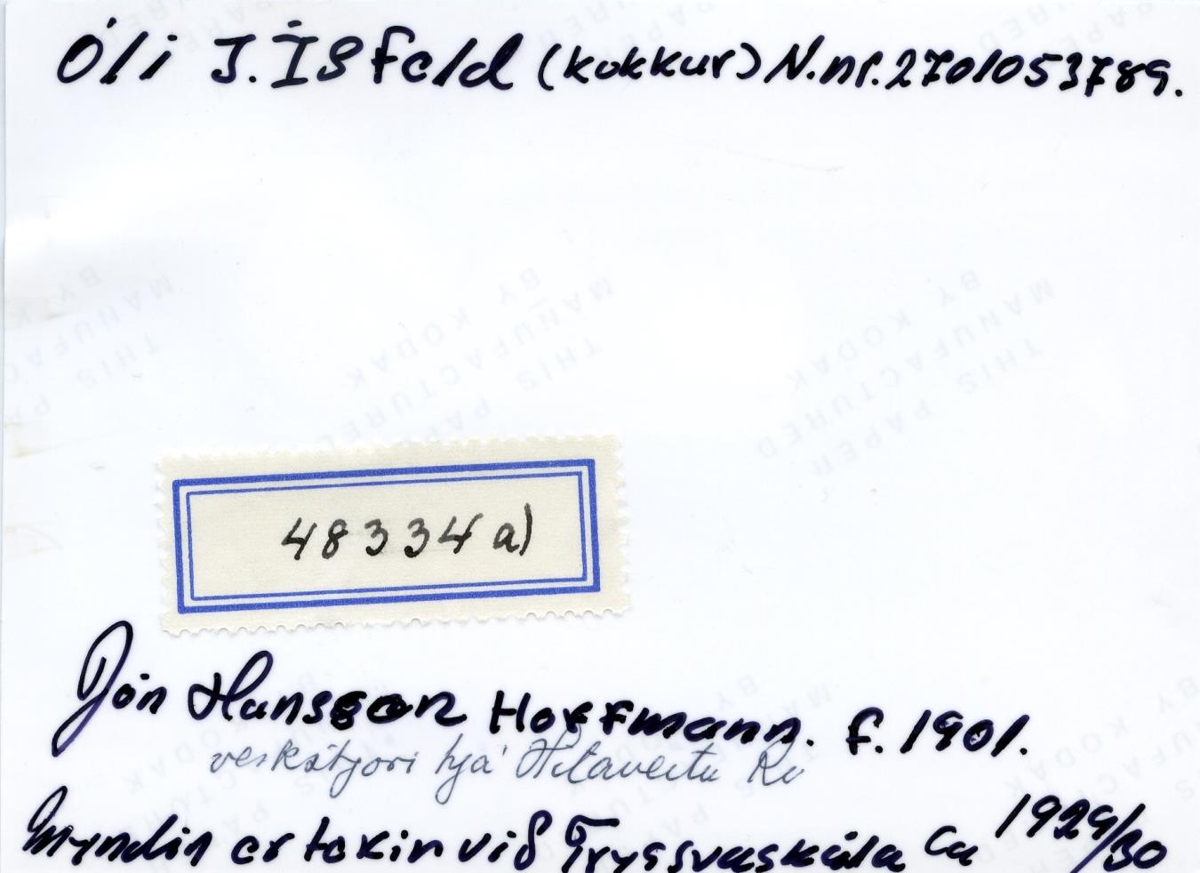 Óli J. Ísfeld (kokkur) N.nr. 2701053789.
THIS PAPER
MANUFACTURED
BY KODAK
48334 a)
Jón Hansson Hoffmann. f. 1901.
verkstjori hjá Hitaveitu Rv
Myndin er tekin við Tryggvaskála ca 1929/30